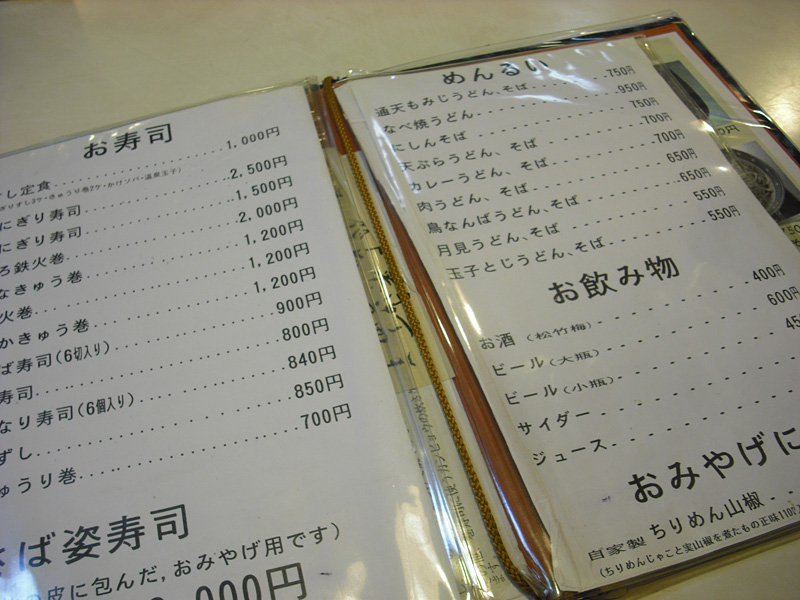 お寿司
し定食 1,000円
ぎりずし3ケ・きゅうり巻2ケ・かけソバ・温泉玉子)
にぎり寿司 2,500円
にぎり寿司 1,500円
ろ鉄火巻 2,000円
なきゅう巻 1,200円
火巻 1,200円
かきゅう巻 1,200円
ば寿司(6切入り) 900円
寿司 800円
なり寿司(6個入り) 840円
ずし 850円
ゅうり巻 700円
さば姿寿司
の皮に包んだ,おみやげ用です)
,000円
めんるい
通天もみじうどん、そば 750円
なべ焼うどん 950円
にしんそば 750円
天ぷらうどん、そば 700円
カレーうどん、そば 700円
肉うどん、そば 650円
鳥なんばうどん、そば 650円
月見うどん、そば 550円
玉子とじうどん、そば 550円
お飲み物
お酒(松竹梅) 400円
ビール(大瓶) 600円
ビール(小瓶) 45
サイダー
ジュース
おみやげに
自家製 ちりめん山椒
(ちりめんじゃこと実山椒を煮たもの正味110